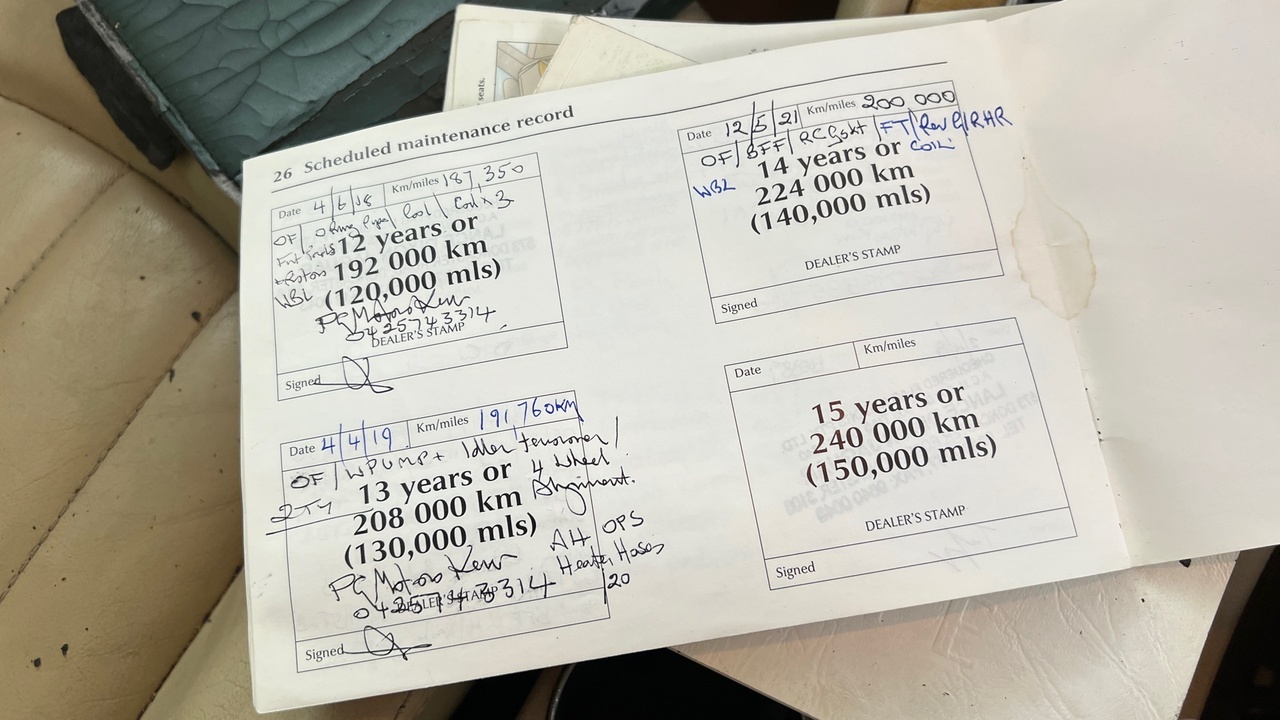 seats.
26 Scheduled maintenance record
Date 4/6/18 Km/miles 187 350
OF/ O Ring Pipe/ Cool \ Coil x 3
12 years or
192 000 km
WBL (120,000 mls)
PG Motors Kew
0425743314
DEALER'S STAMP
Signed
Date 4/4/19 Km/miles 191 760km
OF/ WPUMP + Idler tensioner/
13 years or 4 Wheel
2 TY 208 000 km Alignment.
(130,000 mls)
PG Motors Kew AH OPS
0425743314 Heater Hoses
DEALER'S STAMP /20
Signed
Date 12/5/21 Km/miles 200 000
OF/BFF/RC Gskt/FT/Rev G/RHR
14 years or COIL
WBL 224 000 km
(140,000 mls)
DEALER'S STAMP
Signed
Date Km/miles
15 years or
240 000 km
(150,000 mls)
DEALER'S STAMP
Signed